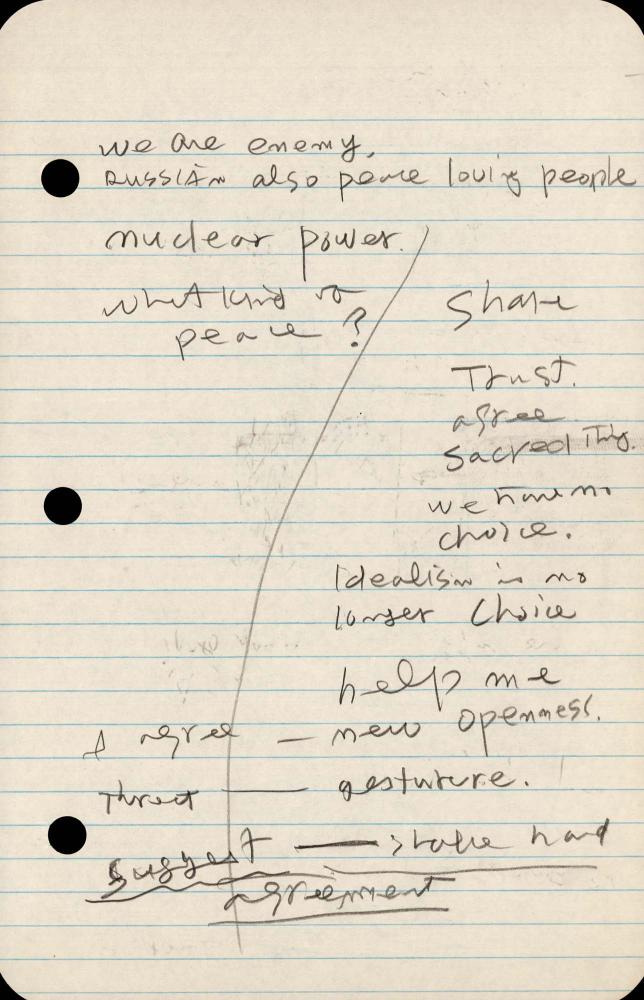 we are enemy,
RUSSIAn also peace loving people
nuclear power.
what kind of
peace ?
Share
Trust.
agree
Sacred Thing.
we have no
choice.
Idealism is no
longer Choice
help me
I agree — new openness.
Threat — gesturure.
Suggest — shake hand
agreement